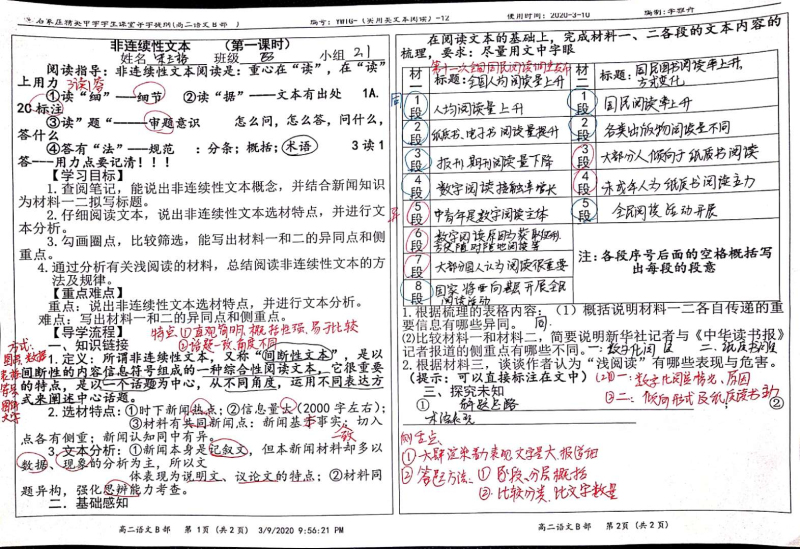 石家庄精英中学学生课堂导学提纲(高二语文B部 )
编号：YWTG-（实用类文本阅读）-12
使用时间：2020-3-10
非连续性文本 （第一课时）
姓名 班级 小组 21
阅读指导：非连续性文本阅读是：重心在“读”，在“读”
上用力
①读“细”——细节 ②读“据”——文本有出处 1A.
2C标注
③读“题“———审题意识 怎么问，怎么答，问什么，
答什么
④答有“法”——规范 ：分条；概括；术语 3读1
答---用力点要记清！！！
【学习目标】
1. 查阅笔记，能说出非连续性文本概念，并结合新闻知识
为材料一二拟写标题。
2. 仔细阅读文本，说出非连续性文本选材特点，并进行文
本分析。
3. 勾画圈点，比较筛选，能写出材料一和二的异同点和侧
重点。
4. 通过分析有关浅阅读的材料，总结阅读非连续性文本的方
法及规律。
【重点难点】
重点：说出非连续性文本选材特点，并进行文本分析。
难点：写出材料一和二的异同点和侧重点。
【导学流程】
特点①直观简明，概括性强，易于比较
一、知识链接
②话题一致，角度不同
方式：
1. 定义：所谓非连续性文本，又称“间断性文本”，是以
间断性的内容信息符号组成的一种综合性阅读文本，它很重要
的特点，是以一个话题为中心，从不同角度，运用不同表达方
式来阐述中心话题。
2. 选材特点：①时下新闻热点；②信息量大(2000 字左右)；
③材料有共同新闻点：新闻基本事实；切入
点各有侧重；新闻认知同中有异。
一致
3. 文本分析：①新闻本身是记叙文，但本新闻材料却多以
数据、现象的分析为主，所以文
体表现为说明文、议论文的特点；②材料同
题异构，强化思辨能力考查。
二．基础感知
高二语文B部 第 1页（共 2 页） 3/9/2020 9:56:21 PM
在阅读文本的基础上，完成材料一、二各段的文本内容的
梳理，要求：尽量用文中字眼
材一
标题：全国人均阅读量上升
材二
标题：国民图书阅读率上升，
方式变化
1段 人均阅读量上升
1段 国民阅读率上升
2段 纸质书、电子书阅读量提升
2段 各类出版物阅读量不同
3段 报刊期刊阅读量下降
3段 大部分人倾向于纸质书阅读
4段 数字阅读接触率增长
4段 未成年人为纸质书阅读主力
5段 中青年是数字阅读主体
5段 全民阅读活动开展
6段
7段 大部分国人认为阅读很重要
8段
阅读活动
注：各段序号后面的空格概括写
出每段的段意
1.根据梳理的表格内容：（1）概括说明材料一二各自传递的重
要信息有哪些异同。 同
(2)比较材料一和材料二，简要说明新华社记者与《中华读书报》
记者报道的侧重点有哪些不同。
2. 根据材料三，谈谈作者认为“浅阅读”有哪些表现与危害。
（提示：可以直接标注在文中）
三、探究未知
① 解题思路 ；②
侧重点：
② 答题方法：① 阶段、分层概括
② 比较分类、比文字数量
高二语文B部 第 2页（共 2 页）